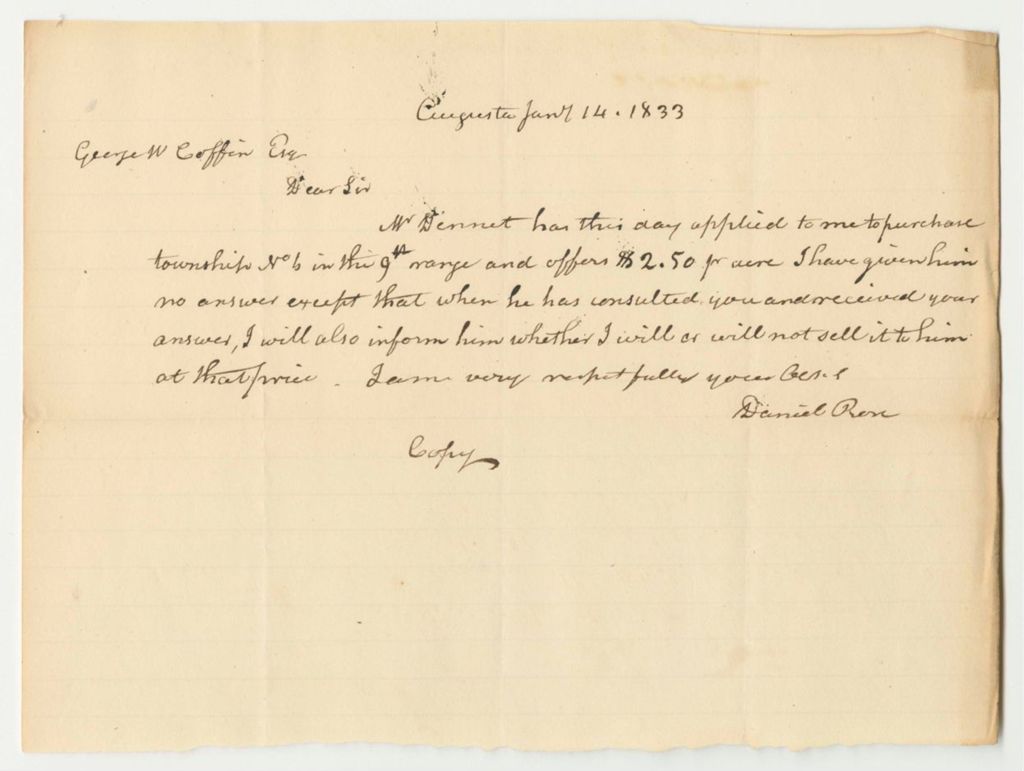 Augusta Jany 14. 1833
George W Coffin Esq
Dear Sir
Mr Dennet has this day applied to me to purchase
township No 6 in the 9th range and offers $2.50 pr acre I have given him
no answer except that when he has consulted you and received your
answer, I will also inform him whether I will or will not sell it to him
at that price. I am very respectfully your
Daniel Rose
Copy